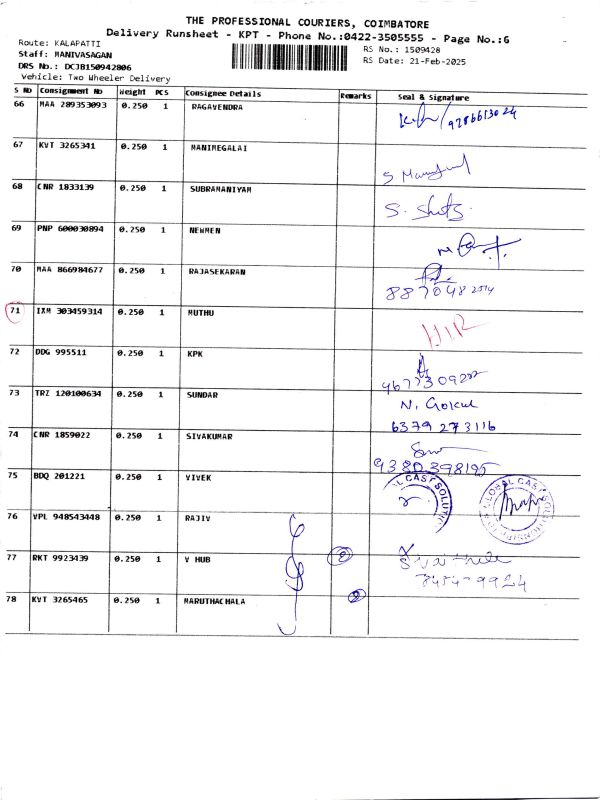 THE PROFESSIONAL COURIERS, COIMBATORE
Delivery Runsheet - KPT - Phone No.:0422-3505555 - Page No.:6
Route: KALAPATTI
RS No.: 1509428
Staff: MANIVASAGAN
RS Date: 21-Feb-2025
DRS No.: DCJB150942806
Vehicle: Two Wheeler Delivery
S No Consignment No Weight PCS Consignee Details Remarks Seal & Signature
66 MAA 289353093 0.250 1 RAGAVENDRA
67 KVT 3265341 0.250 1 MANIMEGALAI
68 CNR 1833139 0.250 1 SUBRAMANIYAM
69 PNP 600030894 0.250 1 NEWMEN
70 MAA 866984677 0.250 1 RAJASEKARAN
71 IXM 303459314 0.250 1 MUTHU
72 DDG 995511 0.250 1 KPK
73 TRZ 120100634 0.250 1 SUNDAR N. Gokul
6379 273116
74 CNR 1859022 0.250 1 SIVAKUMAR
75 BDQ 201221 0.250 1 VIVEK
76 VPL 948543448 0.250 1 RAJIV
77 RKT 9923439 0.250 1 V HUB
78 KVT 3265465 0.250 1 MARUTHACHALA